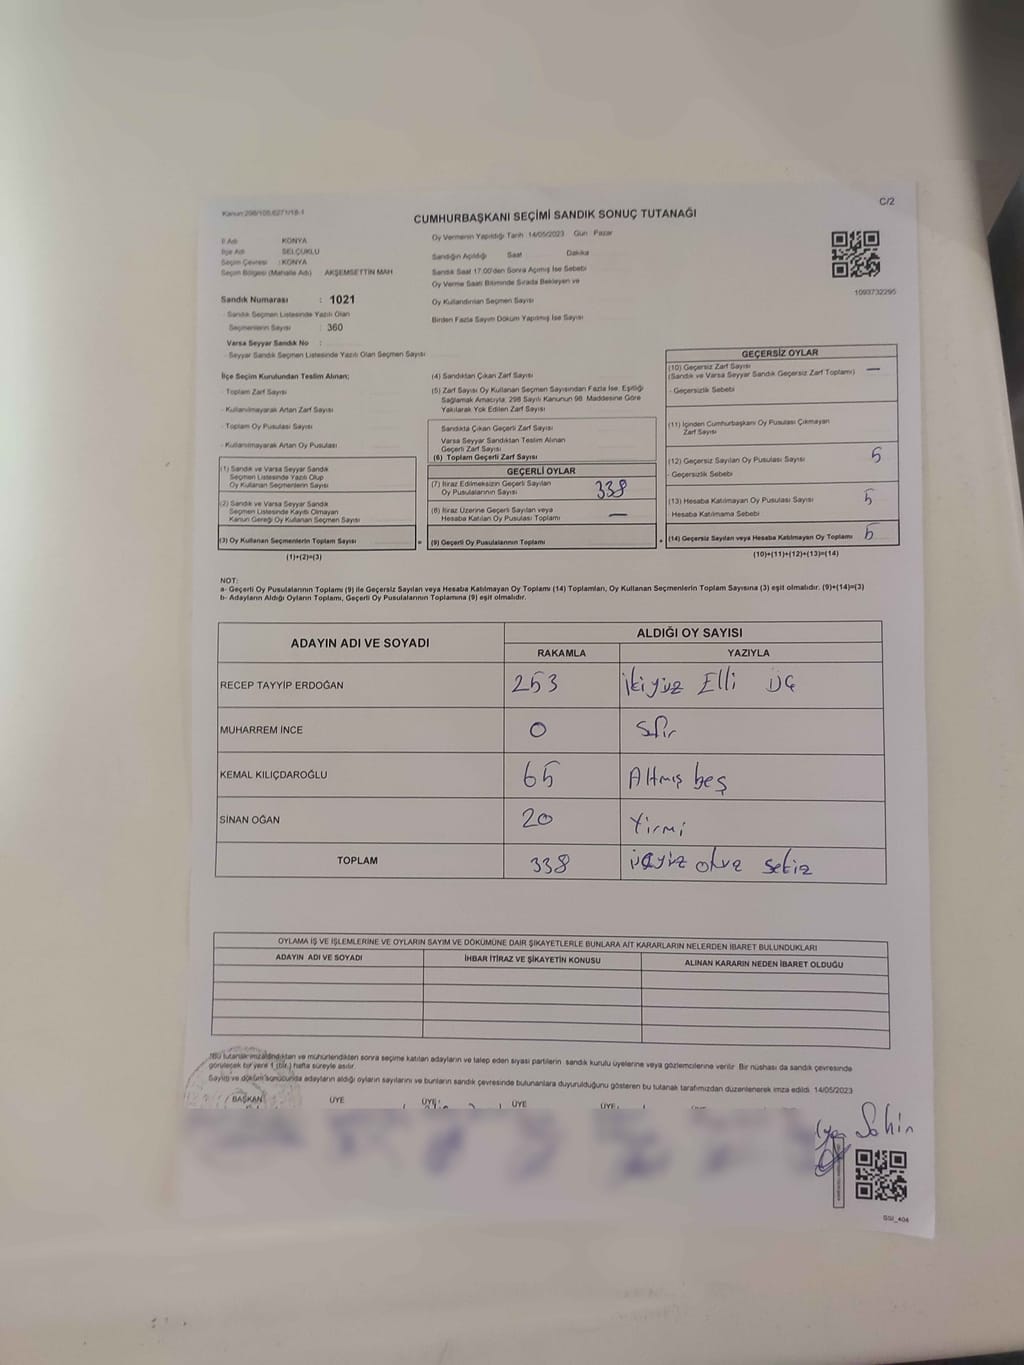 Kanun:298/105,6271/18-1
C/2
CUMHURBAŞKANI SEÇİMİ SANDIK SONUÇ TUTANAĞI
İl Adı KONYA
İlçe Adı SELÇUKLU
Seçim Çevresi : KONYA
Seçim Bölgesi (Mahalle Adı) AKŞEMSETTİN MAH
Oy Vermenin Yapıldığı Tarih :14/05/2023 Gün : Pazar
Sandığın Açıldığı Saat Dakika
Sandık Saat 17.00'den Sonra Açılmış İse Sebebi
Oy Verme Saati Bitiminde Sırada Bekleyen ve
Oy Kullandırılan Seçmen Sayısı
Birden Fazla Sayım Döküm Yapılmış İse Sayısı
1093732295
Sandık Numarası : 1021
Sandık Seçmen Listesinde Yazılı Olan
Seçmenlerin Sayısı : 360
Varsa Seyyar Sandık No :
- Seyyar Sandık Seçmen Listesinde Yazılı Olan Seçmen Sayısı
İlçe Seçim Kurulundan Teslim Alınan;
- Toplam Zarf Sayısı
- Kullanılmayarak Artan Zarf Sayısı
- Toplam Oy Pusulası Sayısı
- Kullanılmayarak Artan Oy Pusulası
(1) Sandık ve Varsa Seyyar Sandık
Seçmen Listesinde Yazılı Olup
Oy Kullanan Seçmenlerin Sayısı
(2) Sandık ve Varsa Seyyar Sandık
Seçmen Listesinde Kaydı Olmayan
Kanun Gereği Oy Kullanan Seçmen Sayısı
(3) Oy Kullanan Seçmenlerin Toplam Sayısı
(1)+(2)=(3)
(4) Sandıktan Çıkan Zarf Sayısı
(5) Zarf Sayısı Oy Kullanan Seçmen Sayısından Fazla İse, Eşitliği
Sağlamak Amacıyla; 298 Sayılı Kanunun 98. Maddesine Göre
Yakılarak Yok Edilen Zarf Sayısı
Sandıkta Çıkan Geçerli Zarf Sayısı
Varsa Seyyar Sandıktan Teslim Alınan
Geçerli Zarf Sayısı
(6) Toplam Geçerli Zarf Sayısı
GEÇERLİ OYLAR
(7) İtiraz Edilmeksizin Geçerli Sayılan
Oy Pusulalarının Sayısı 338
(8) İtiraz Üzerine Geçerli Sayılan veya
Hesaba Katılan Oy Pusulası Toplamı —
= (9) Geçerli Oy Pusulalarının Toplamı +
GEÇERSİZ OYLAR
(10) Geçersiz Zarf Sayısı
(Sandık ve Varsa Seyyar Sandık Geçersiz Zarf Toplamı) —
- Geçersizlik Sebebi
(11) İçinden Cumhurbaşkanı Oy Pusulası Çıkmayan
Zarf Sayısı
(12) Geçersiz Sayılan Oy Pusulası Sayısı 5
- Geçersizlik Sebebi
(13) Hesaba Katılmayan Oy Pusulası Sayısı 5
- Hesaba Katılmama Sebebi
(14) Geçersiz Sayılan veya Hesaba Katılmayan Oy Toplamı 5
(10)+(11)+(12)+(13)=(14)
NOT:
a- Geçerli Oy Pusulalarının Toplamı (9) ile Geçersiz Sayılan veya Hesaba Katılmayan Oy Toplamı (14) Toplamları, Oy Kullanan Seçmenlerin Toplam Sayısına (3) eşit olmalıdır. (9)+(14)=(3)
b- Adayların Aldığı Oyların Toplamı, Geçerli Oy Pusulalarının Toplamına (9) eşit olmalıdır.
ADAYIN ADI VE SOYADI
ALDIĞI OY SAYISI
RAKAMLA YAZIYLA
RECEP TAYYIP ERDOĞAN 253 İkiyüz Elli üç
MUHARREM İNCE 0 Sıfır
KEMAL KILIÇDAROĞLU 65 Altmış beş
SİNAN OĞAN 20 Yirmi
TOPLAM 338 üçyüz otuz sekiz
OYLAMA İŞ VE İŞLEMLERİNE VE OYLARIN SAYIM VE DÖKÜMÜNE DAİR ŞİKAYETLERLE BUNLARA AİT KARARLARIN NELERDEN İBARET BULUNDUKLARI
ADAYIN ADI VE SOYADI İHBAR İTİRAZ VE ŞİKAYETİN KONUSU ALINAN KARARIN NEDEN İBARET OLDUĞU
*Bu tutanak imzalandıktan ve mühürlendikten sonra seçime katılan adayların ve talep eden siyasi partilerin sandık kurulu üyelerine veya gözlemcilerine verilir. Bir nüshası da sandık çevresinde
görülecek bir yere 1 (bir) hafta süreyle asılır.
Sayım ve döküm sonucunda adayların aldığı oyların sayılarını ve bunların sandık çevresinde bulunanlara duyurulduğunu gösteren bu tutanak tarafımızdan düzenlenerek imza edildi. 14/05/2023
BAŞKAN ÜYE ÜYE ÜYE ÜYE
Şahin
GSI_404